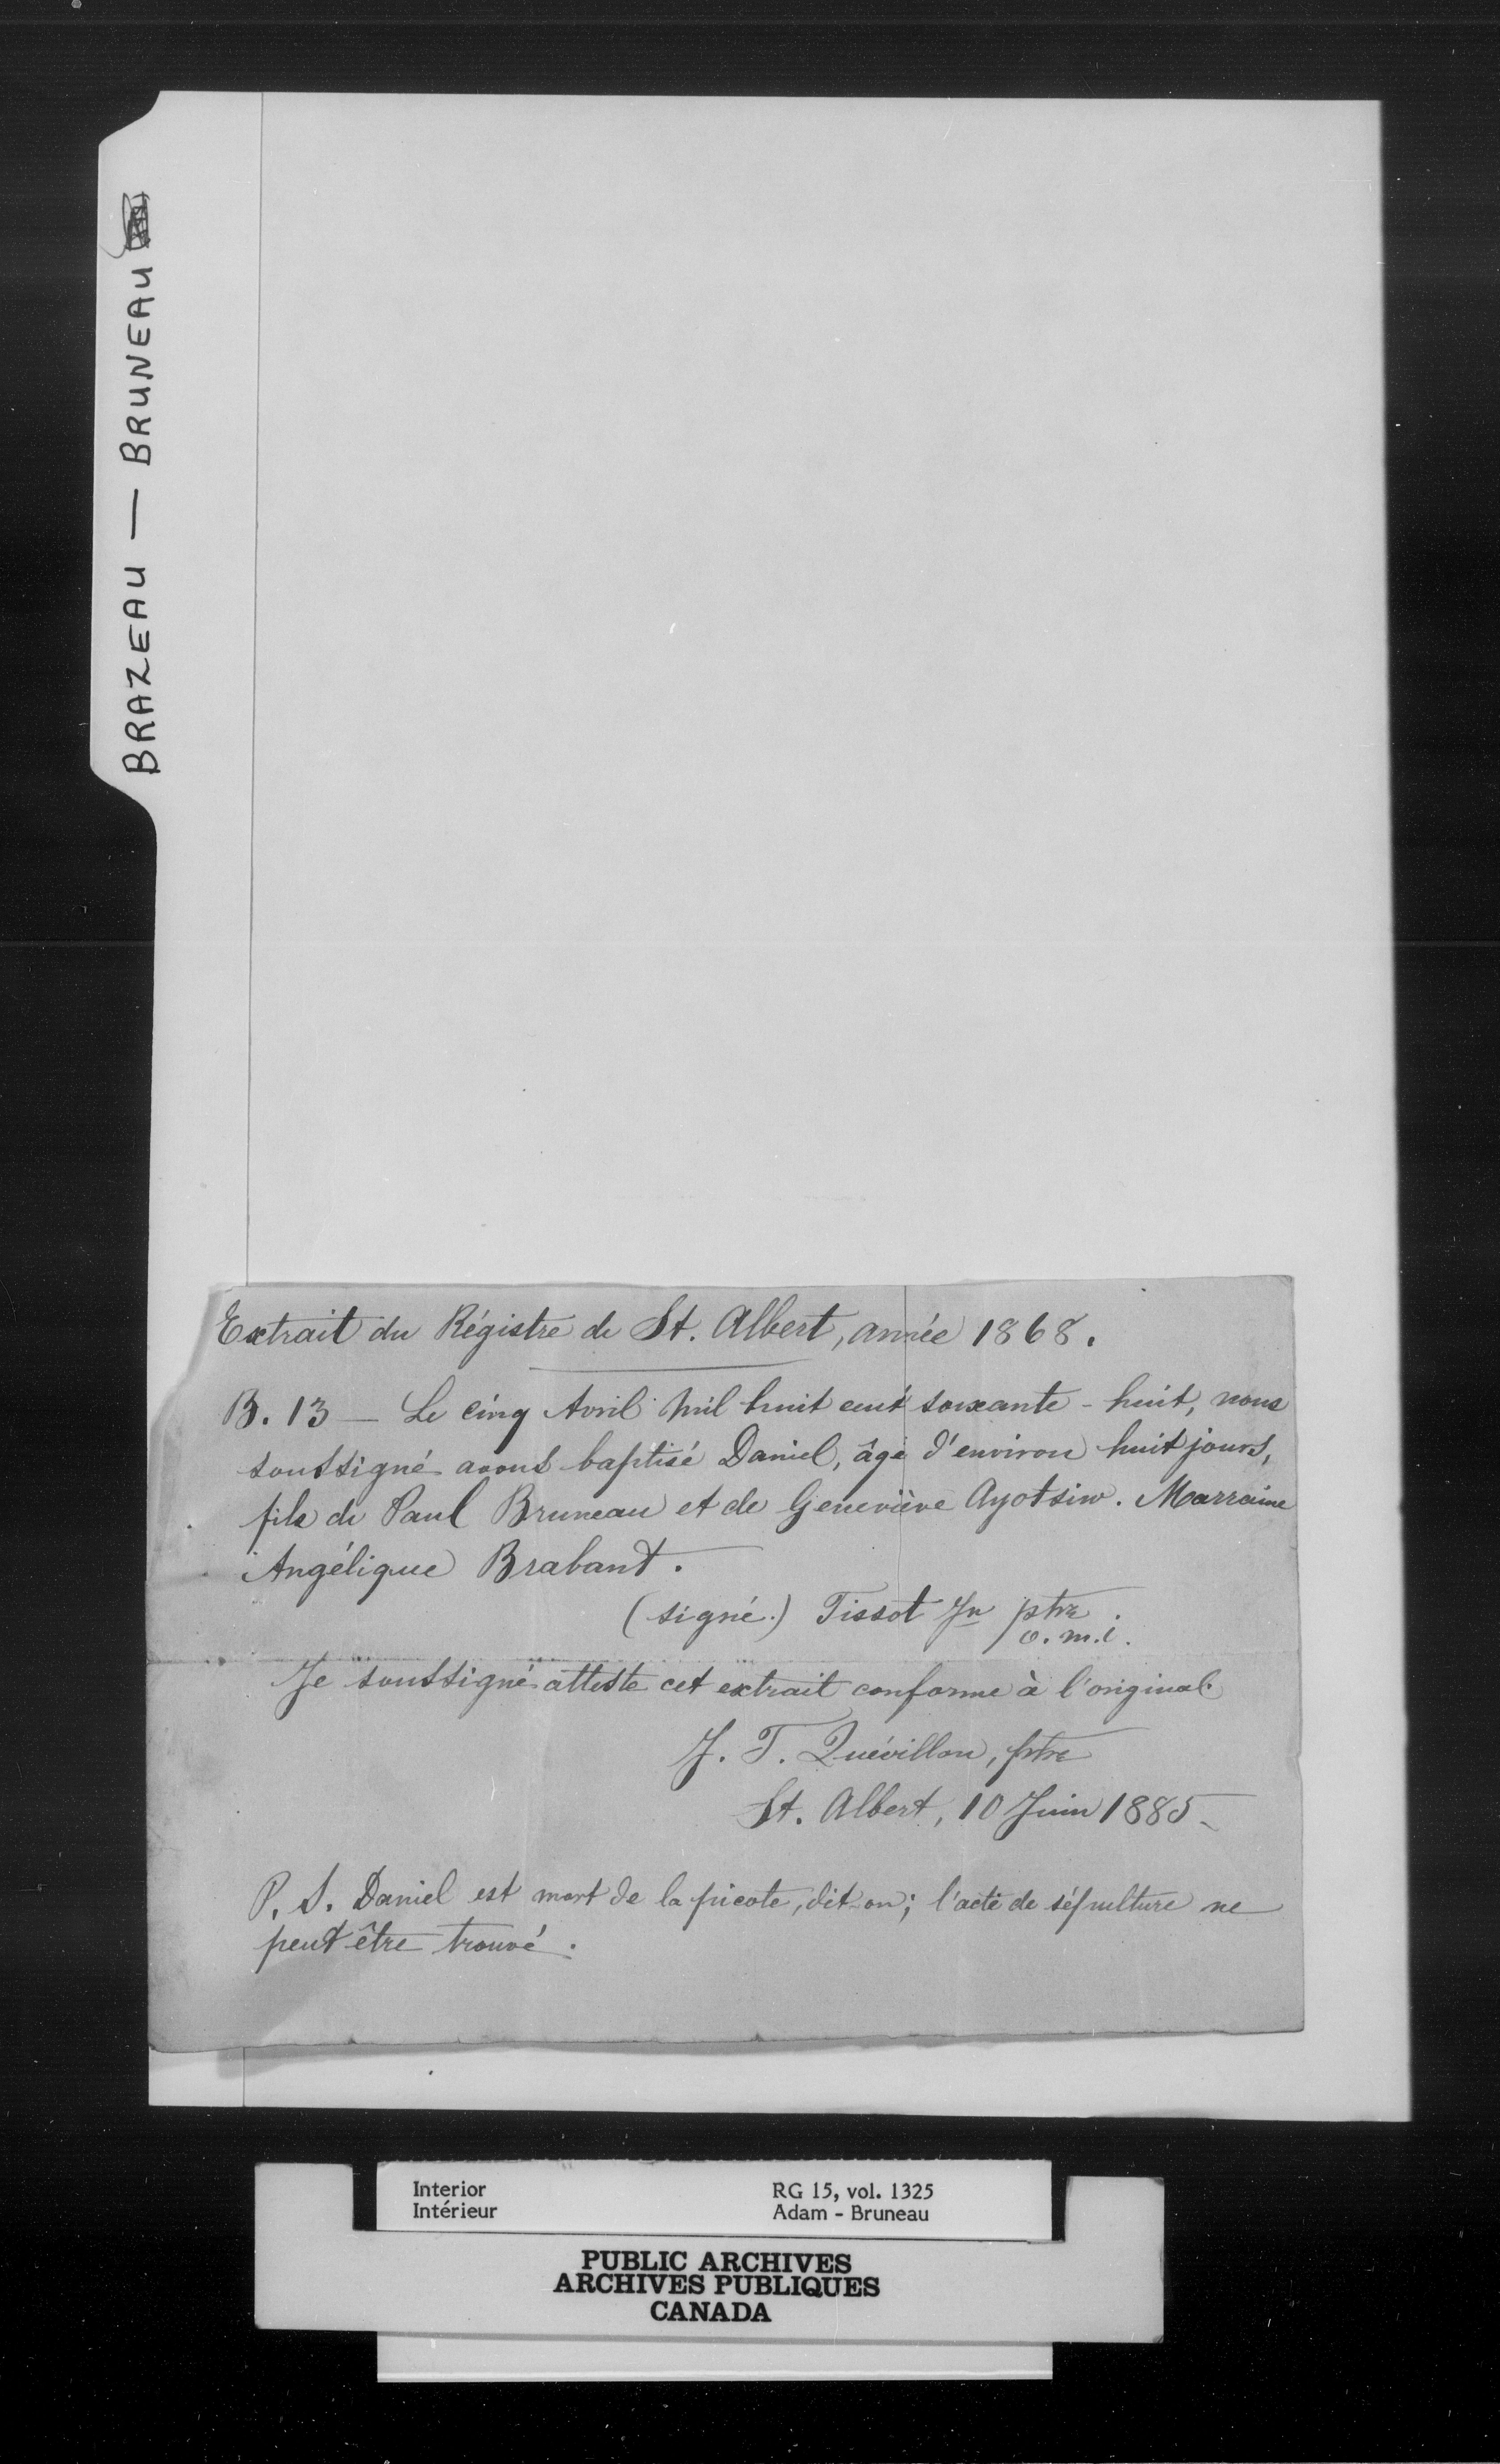 BRAZEAU — BRUNEAU
Extrait du Régistre de St. Albert, année 1868.
B. 13 — Le cinq Avril mil huit cent soixante-huit, nous
soussigné avons baptisé Daniel, âgé d'environ huit jours,
fils de Paul Bruneau et de Geneviève Ayotsiw. Marraine
Angélique Brabant.
(signé.) Tissot Jn ptre.
o.m.i.
Je soussigné atteste cet extrait conforme à l'original.
J. T. Quévillon, ptre
St. Albert, 10 Juin 1885
P. S. Daniel est mort de la picote, dit-on; l'acte de sépulture ne
peut être trouvé.
Interior RG 15, vol. 1325
Intérieur Adam - Bruneau
PUBLIC ARCHIVES
ARCHIVES PUBLIQUES
CANADA